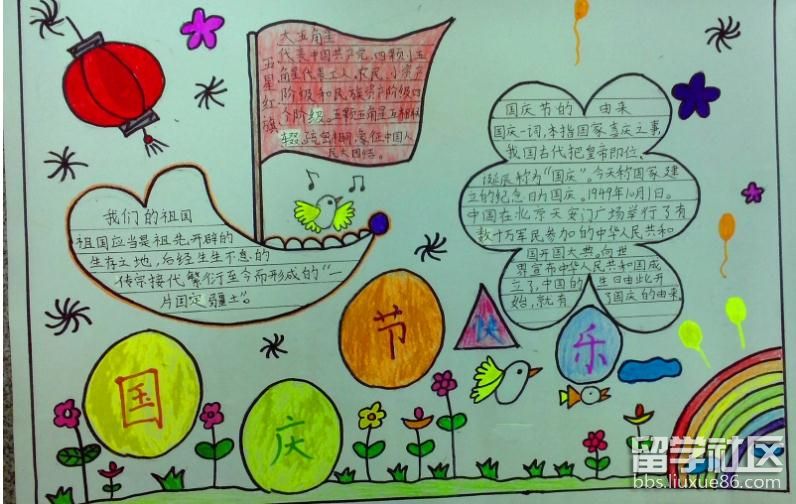 大五角星
代表中国共产党,四颗小五
角星代表工人,农民,小资产
阶级和民族资产阶级四
个阶级。五颗五角星互相联
缀,疏密相间,象征中国人
民大团结。
五星红旗
我们的祖国
祖国应当是祖先开辟的
生存之地,后经生生不息的
传宗接代繁衍至今而形成的“一
片固定疆土”。
国庆节的 由来
国庆一词,本指国家喜庆之事,
我国古代把皇帝即位、
诞辰称为“国庆”。今天称国家建
立的纪念日为国庆。1949年10月1日。
中国在北京天安门广场举行了有
数十万军民参加的中华人民共和
国开国大典。向世
界宣布中华人民共和国成
立了,中国的 生日由此开
始,就有 了国庆的由来
国
庆
节
快
乐
留学社区
bbs.liuxue86.com